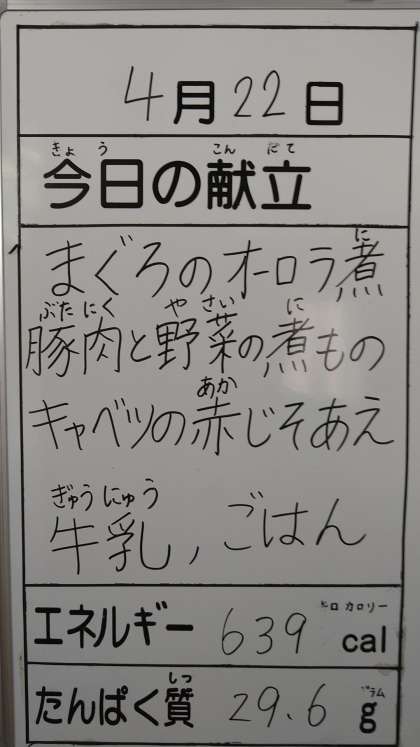 4月22日
きょう こんだて
今日の献立
に
まぐろのオーロラ煮
ぶたにく やさい に
豚肉と野菜の煮もの
あか
キャベツの赤じそあえ
ぎゅうにゅう
牛乳,ごはん
キロカロリー
エネルギー 639 cal
しつ グラム
たんぱく質 29.6 g